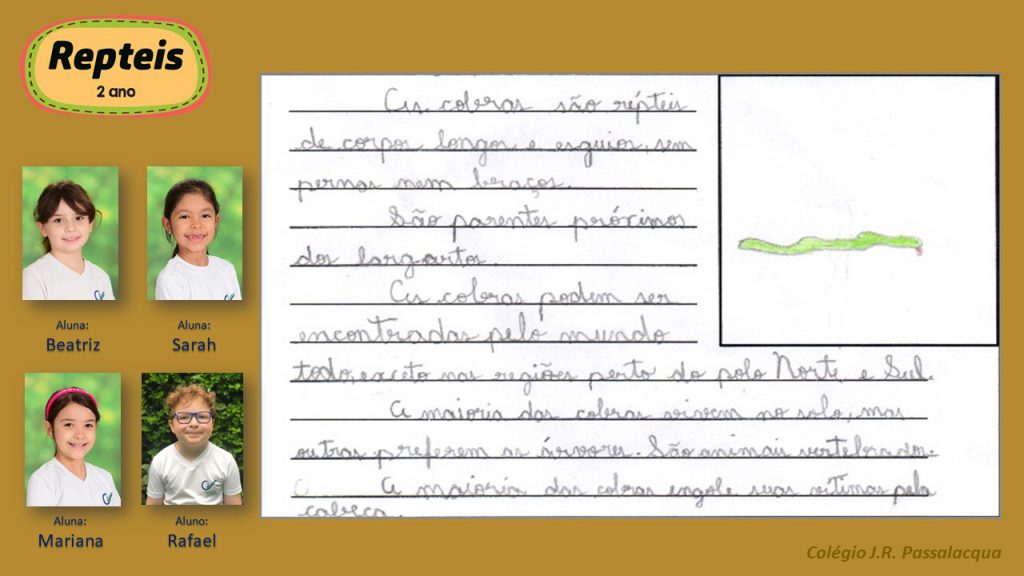 Repteis
2 ano
Aluna:
Beatriz
Aluna:
Sarah
Aluna:
Mariana
Aluno:
Rafael
As cobras são répteis
de corpos longos e esguios, sem
pernas nem braços.
São parentes próximos
dos largartos.
As cobras podem ser
encontradas pelo mundo
todo, exceto nas regiões perto do polo Norte e Sul.
A maioria das cobras vivem no solo, mas
outras preferem as árvores. São animais vertebrados.
A maioria das cobras engole suas vitimas pela
cabeça.
Colégio J.R. Passalacqua